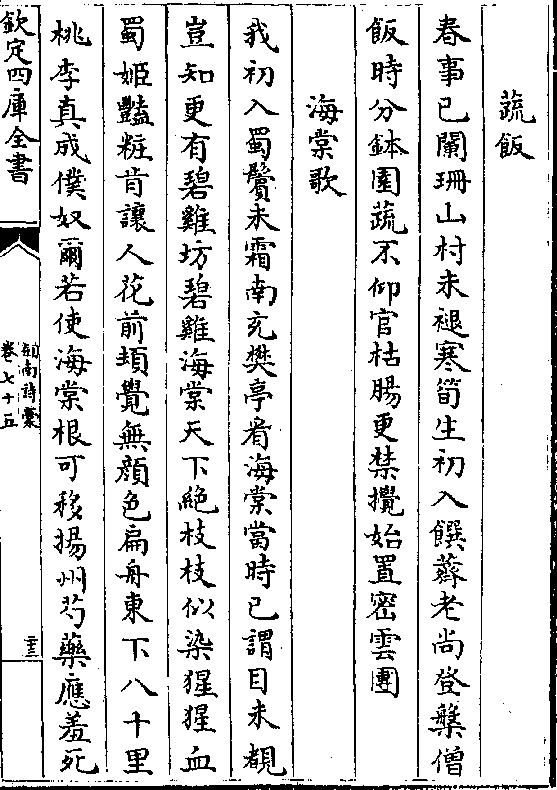 蔬飯
春事已闌珊山村未褪寒筍生初入饌蕣老尚登槃僧
飯時分鉢園蔬不仰官枯腸更禁攪始置密雲團
海棠歌
我初入蜀鬢未霜南充樊亭看海棠當時已謂目未覩
豈知更有碧雞坊碧雞海棠天下絶枝枝似染猩猩血
蜀姬豔粧肯讓人花前頓覺無顔色扁舟東下八千里
桃李真成僕奴爾若使海棠根可移揚州芍藥應羞死
欽定四庫全書
劍南詩槀
卷七十五
二十三